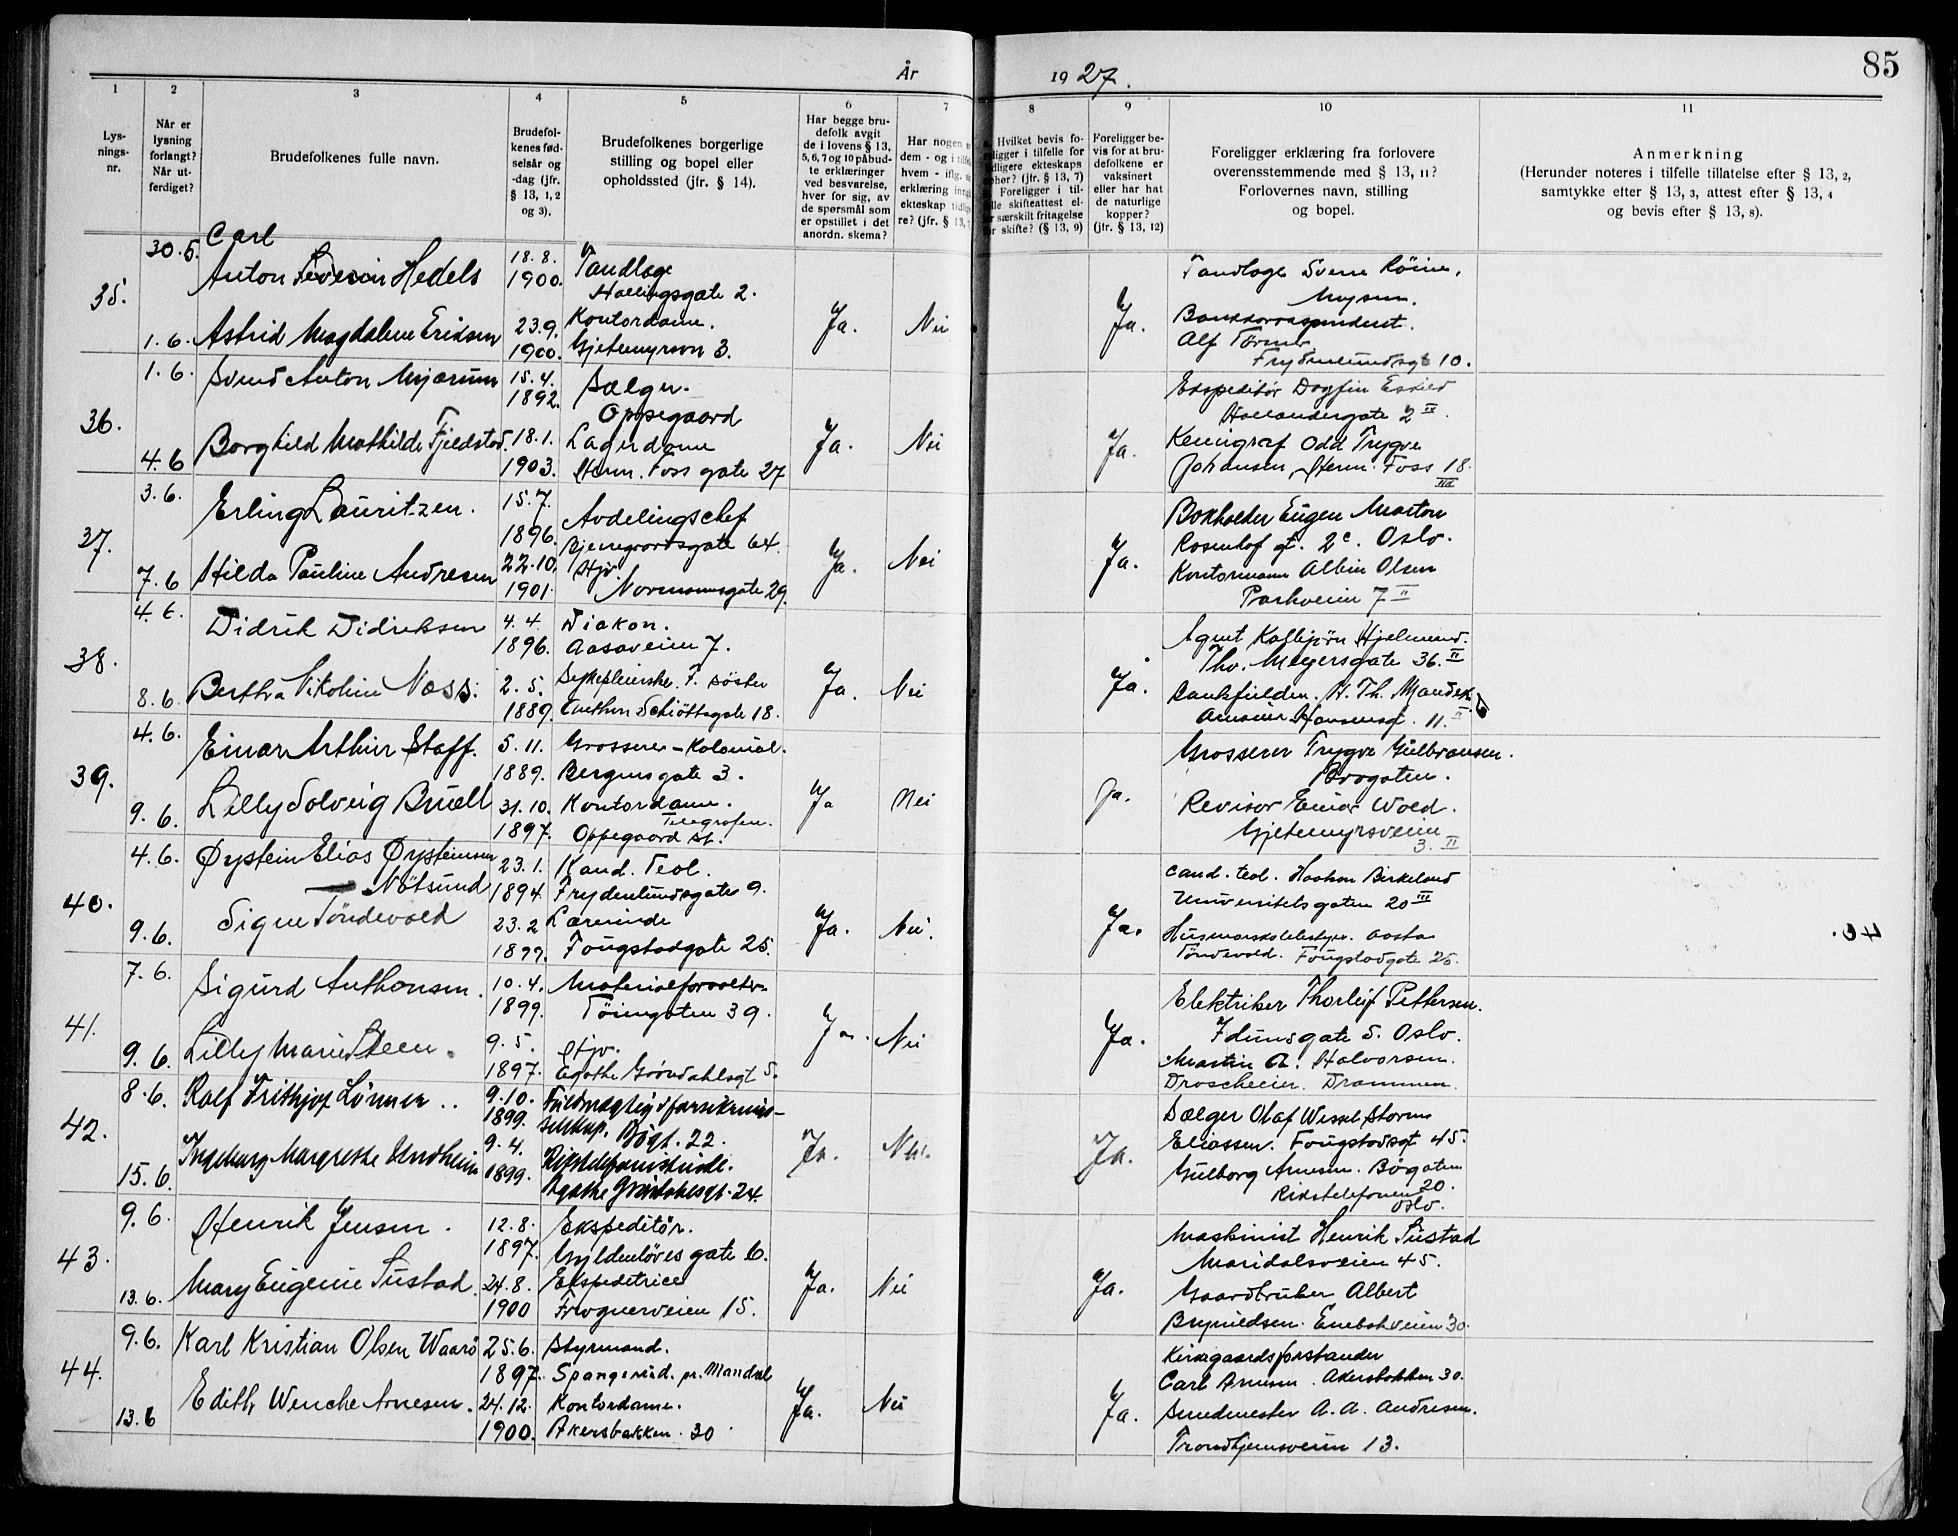 85
År 1927.
1 2 3 4 5 6 7 8 9 10 11
Lys-
nings-
nr.
Når er
lysning
forlangt?
Når ut-
ferdiget?
Brudefolkenes fulle navn.
Brudefol-
kenes fød-
selsår og
-dag (jfr.
§ 13, 1, 2
og 3).
Brudefolkenes borgerlige
stilling og bopel eller
opholdssted (jfr. § 14).
Har begge bru-
defolk avgit
de i lovens § 13,
5, 6, 7 og 10 påbud-
te erklæringer
ved besvarelse,
hver for sig, av
de spørsmål som
er opstillet i det
anordn. skema?
Har nogen
dem - og i
hvem - iflg.
erklæring
ekteskap
re? (jfr. § 13,
Hvilket bevis fo-
ligger i tilfelle for
tidligere ekteskaps
ophør? (jfr. § 13, 7)
Foreligger i til-
felle skifteattest el-
ler særskilt fritagelse
for skifte? (§ 13, 9)
Foreligger be-
vis for at bru-
defolkene er
vaksinert
eller har hat
de naturlige
kopper?
(jfr. § 13, 12)
Foreligger erklæring fra forlovere
overensstemmende med § 13, 11?
Forlovernes navn, stilling
og bopel.
Anmerkning
(Herunder noteres i tilfelle tillatelse efter § 13, 2,
samtykke efter § 13, 3, attest efter § 13, 4
og bevis efter § 13, 8).
35.
30.5.
1.6.
Carl
Anton Hedels
Astrid Magdalene Eriksen
18.8.
1900.
23.9.
1900.
Tandlæge
2.
Kontordame.
Gjetemyrsvn 3.
Ja. Nei Ja.
Tandlæge Sverre
Mysen.
Bankkorrespondent.
Alf
Frydenlundsgt 10.
36.
1.6.
4.6
Svend Anton Mjærum
Borghild Mathilde Fjeldstad.
15.4.
1892.
18.1.
1903.
Sælger.
Oppegaard
Lagerdame
Herm. Foss gate 27
Ja. Nei Ja.
Ekspeditør Dagfin
Hollendergate 2 IV.
Kemigraf Odd Trygve
Johansen, Herm. Foss 18.
37.
3.6.
7.6
Erling Lauritzen.
Hilda Pauline Andresen
15.7.
1896.
22.10.
1901.
Avdelingschef
Bjerregaardsgate 64.
Hjv.
Normannsgate 29.
Ja. Nei Ja.
Bokholder Eugen Marton
Rosenhof gt. 2c. Oslo.
Kontormann Albin Olsen
Parkveien 7 II
38.
4.6
8.6.
Didrik Didriksen
Bertha Nikoline Næss.
4.4.
1896.
2.5.
1889.
Diakon.
Aasaveien 7.
Sykepleierske. F. søster
Schiøttsgate 18.
Ja. Nei Ja.
Agent Kolbjørn
Thv. Meyersgate 36. II
H. Th.
11. II
39.
4.6.
9.6.
Einar Arthur Staff.
Lilly Solveig Bruell
5.11.
1889.
31.10.
1897.
Grosserer - Kolonial.
Bergensgate 3.
Kontordame.
Telegrafen.
Oppegaard st.
Ja Nei Ja.
Grosserer Trygve Gulbransen.
Brogaten.
Revisor Einar Wold.
Gjetemyrsveien
3. II
40.
4.6.
9.6.
Øystein Elias Øysteinsen
Nøtsund
Signe Tøndevold
23.1.
1894.
23.2
1899.
Kand. Teol.
Frydenlundsgate 9.
Lærerinde
Fougstadgate 25.
Ja. Nei. Ja.
cand. teol. Haakon Birkeland
Universitetsgaten 20 III
Aasta
Tøndevold. Fougstadgate 25.
40.
41.
7.6.
9.6.
Sigurd Anthonsen.
Lilly Marie Steen.
10.4.
1899.
9.5.
1897.
Materialforvalter
Tøiengaten 39.
Hjv.
Agathe Grøndahlsgt 5.
Ja. Nei Ja.
Elektriker Thorleif Pettersen.
Idunsgate 5. Oslo.
Martin A. Halvorsen.
Droscheeier. Drammen.
42.
8.6.
15.6.
Rolf Frithjof Lönner ..
Ingeborg Margrethe Undheim
9.10.
1899.
9.4.
1899.
Fuldmægtig i forsikrings-
selskap. Bögt. 22.
Rikstelefonistinde.
Agathe Gröndahlsgt. 24.
Ja. Nei. Ja.
Sælger Olaf Wessel Storm
Eliassen. Fougstadsgt 45.
Gulborg Arnesen. Bøgaten
20.
Rikstelefonen
Oslo.
43.
9.6.
13.6.
Henrik Jensen.
Mary Eugenie Sustad.
12.8.
1897.
24.8.
1900
Ekspeditör.
Gyldenløves gate 6.
Ekspeditrice
Frognerveien 15.
Ja. Nei Ja.
Maskinist Henrik Sustad
Maridalsveien 45.
Gaardbruker Albert
Brynildsen. Enebakveien 30.
44.
9.6.
13.6
Karl Kristian Olsen Waarö
Edith Wenche Arnesen.
25.6.
1897.
24.12.
1900.
Styrmand.
Spangereid. pr. Mandal
Kontordame.
Akersbakken. 30
Ja. Nei Ja.
Kirkegaardsforstander
Carl Arnesen. Akersbakken 30.
Smedmester A. A. Andresen.
Trondhjemsveien 13.